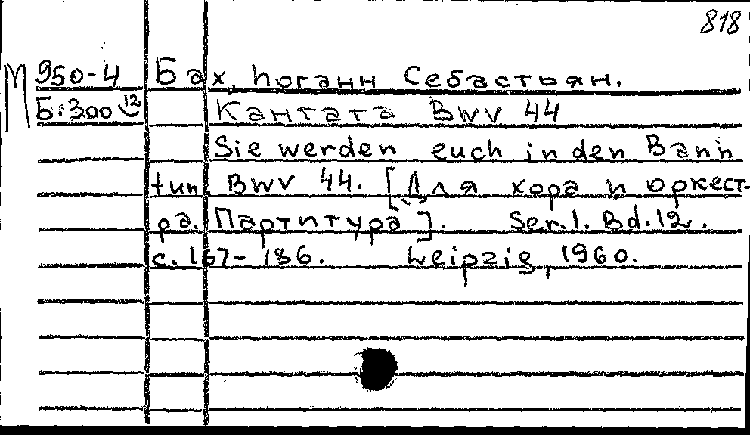 818
М 950-4 Бах, Иоганн Себастьян.
Б.300 12 Кантата BWV 44
Sie werden euch in den Bann
tun BWV 44. [Для хора и оркест-
ра. Партитура]. Ser.1. Bd.12.
с. 167-186. Leipzig, 1960.